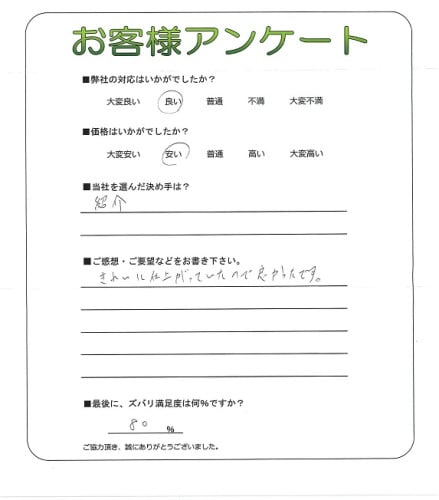 お客様アンケート
■弊社の対応はいかがでしたか?
大変良い 良い 普通 不満 大変不満
■価格はいかがでしたか?
大変安い 安い 普通 高い 大変高い
■当社を選んだ決め手は?
紹介
■ご感想・ご要望などをお書き下さい。
きれいに仕上がっていたので良かったです。
■最後に、ズバリ満足度は何%ですか?
80 %
ご協力頂き、誠にありがとうございました。